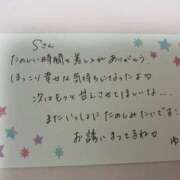 Sさん
たのしい時間を過ごしてありがとう
ほっこり幸せな気持ちになったよ♡
次はもっと甘えさせてほしいな...
またいっしょにたのしみたいです
お誘いまってるね♡
ゆ